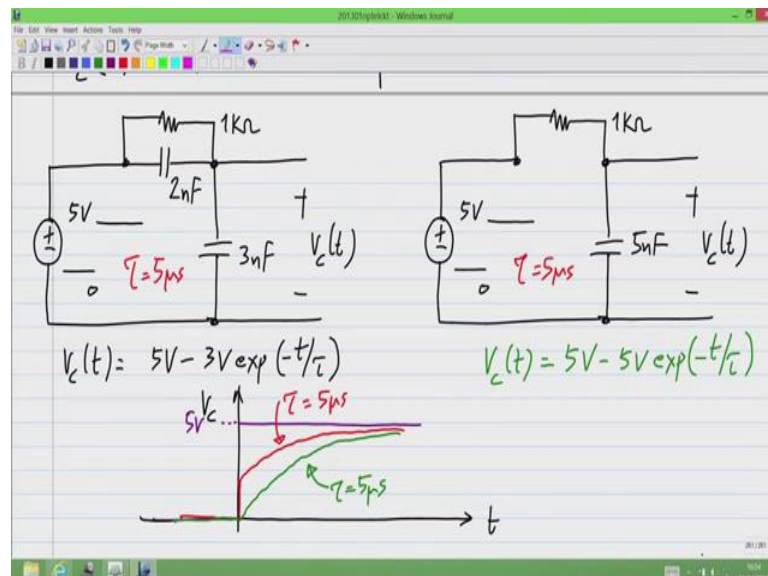 201301nptel.kt - Windows Journal
File Edit View Insert Actions Tools Help
Page Width
B I
1KΩ
2nF
5V
+
τ=5μs
3nF
V_c(t)
0
-
V_c(t)= 5V-3Vexp(-t/τ)
1KΩ
5V
+
τ=5μs
5nF
V_c(t)
0
-
V_c(t)=5V-5Vexp(-t/τ)
V_c
5V
τ=5μs
τ=5μs
t
261/261